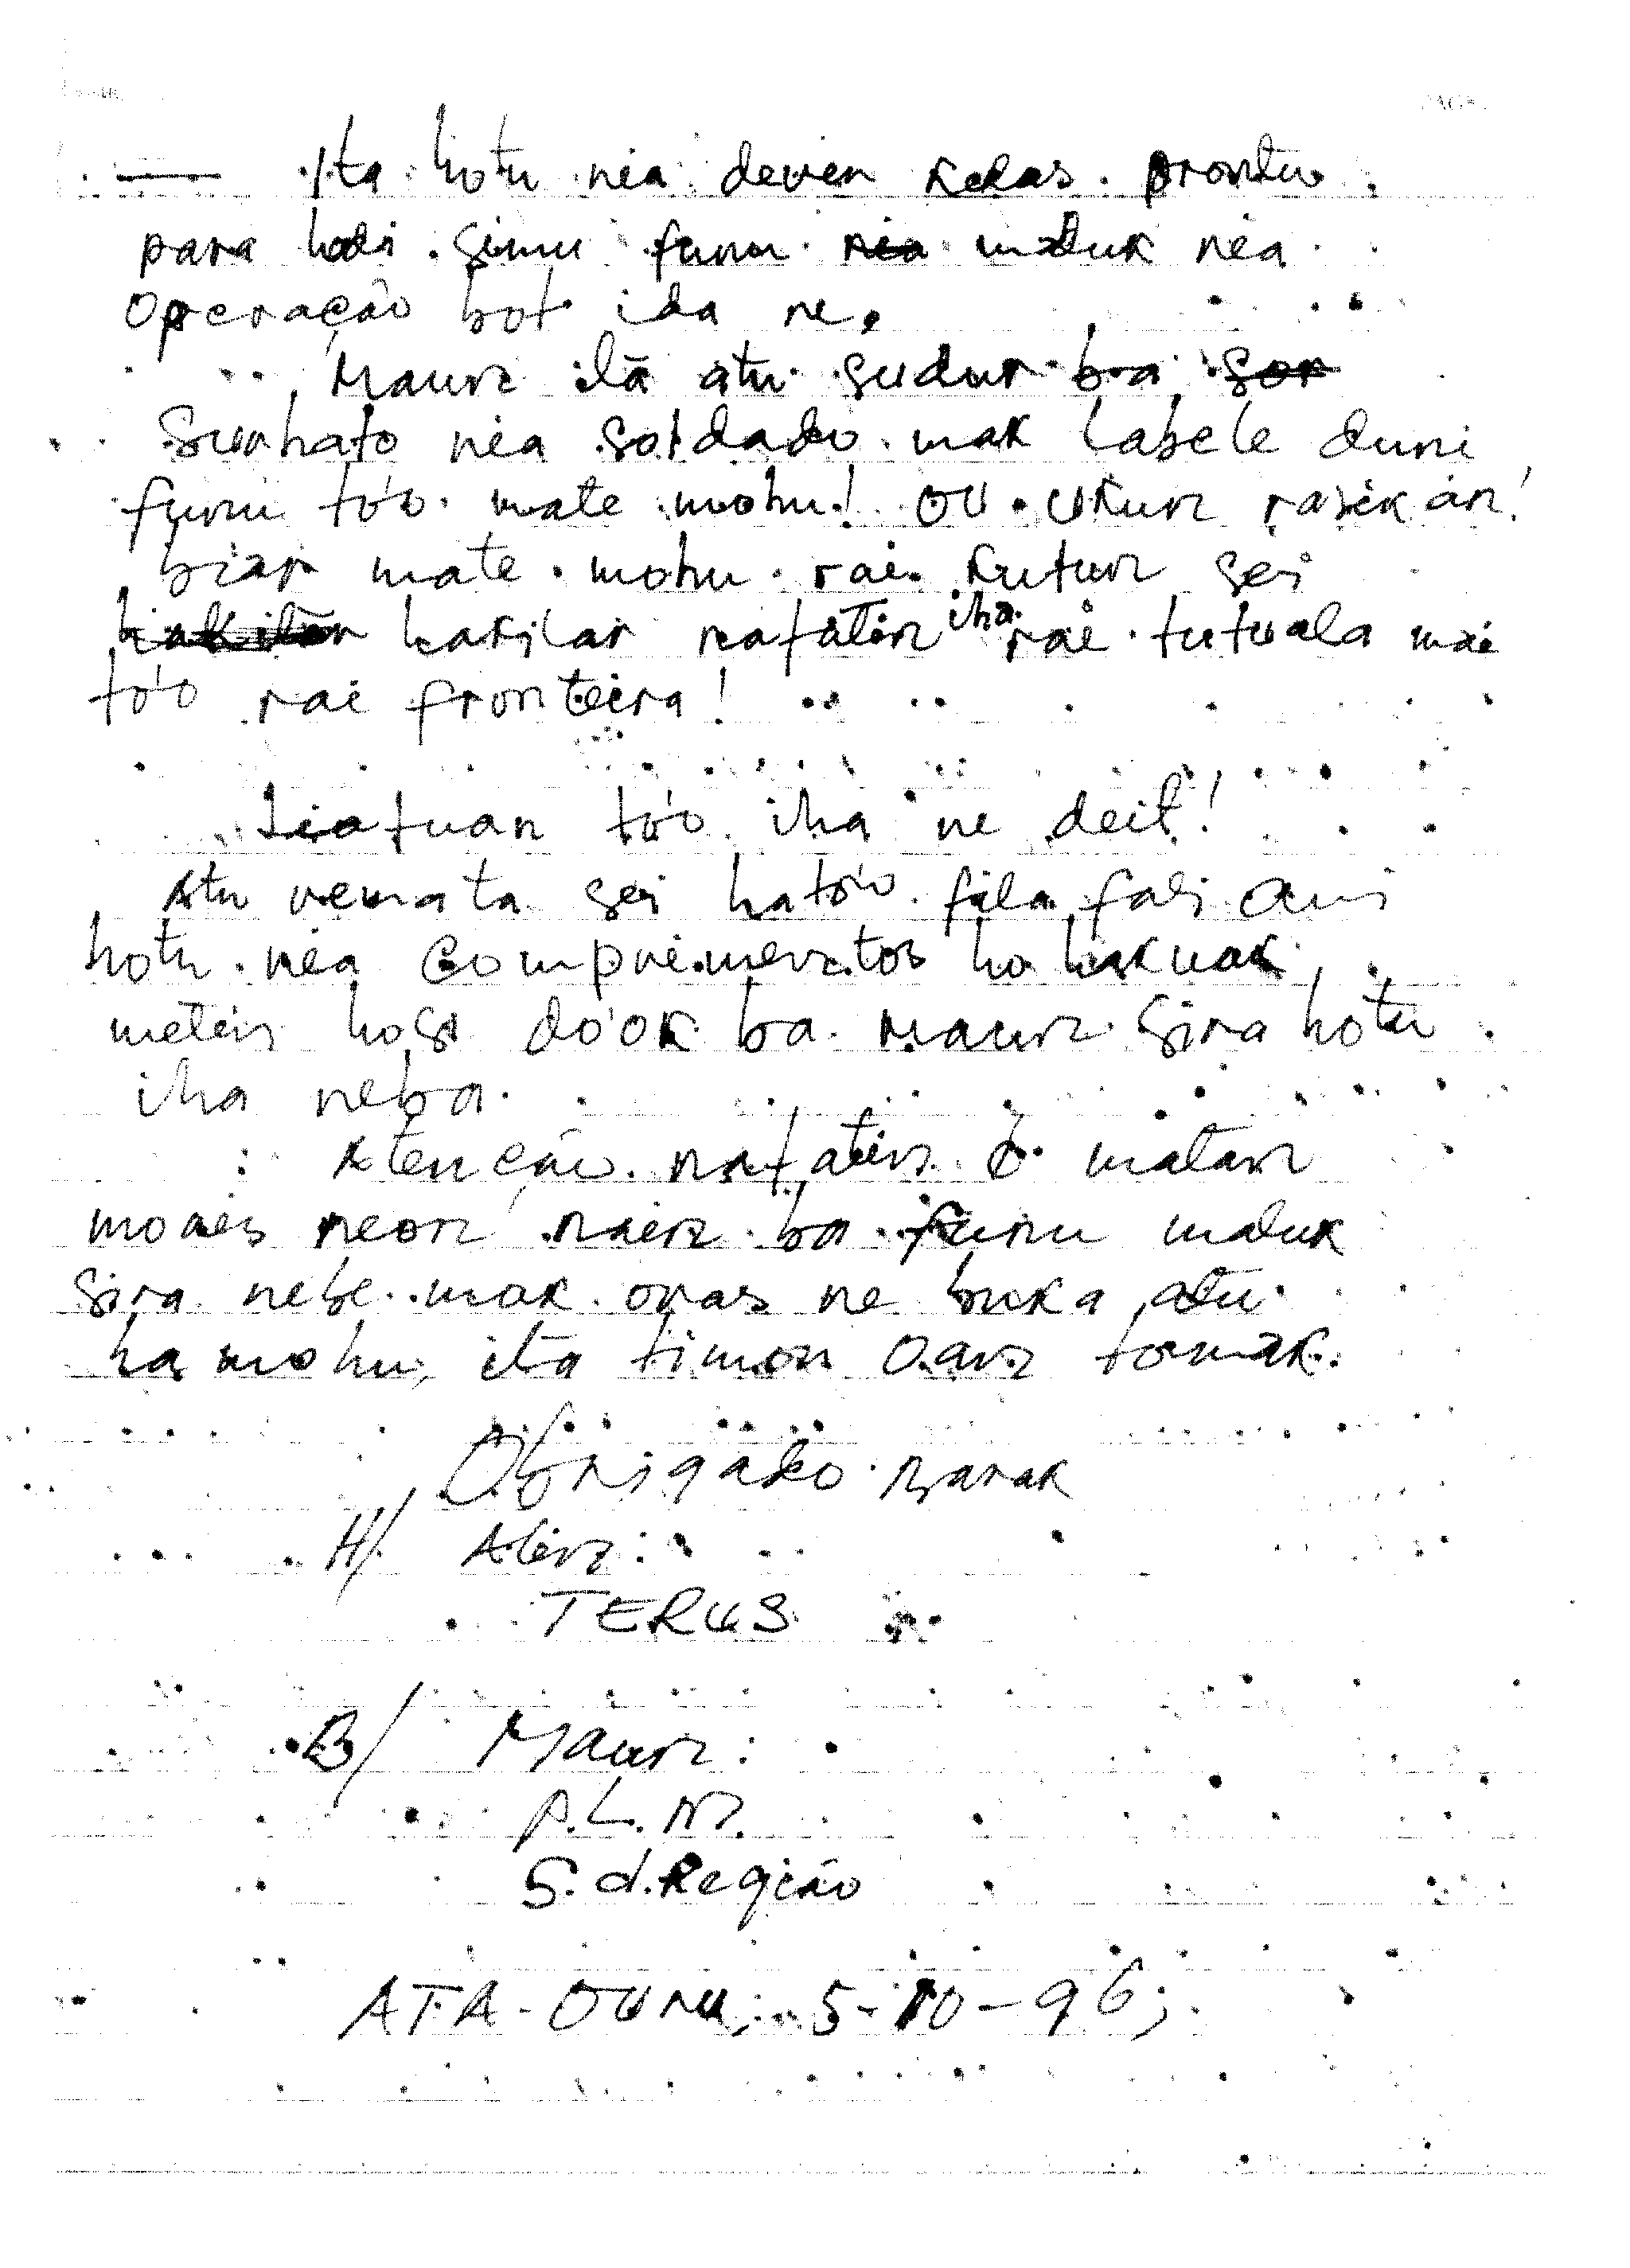 — Ita hotu nea deven kelas prontu
para hodi simu funu nia maluk nea
Operação bot ida ne.
Maun ilā atu sudur ba sor
Sunhato nea soldado mak labele duni
funu to'o mate mohu! OU ukun rasik an!
biar mate mohu rai kutun sei
hakilar nafatin iha rai tutuala mai
to'o rai fronteira!
Liafuan to'o iha ne deit!
Atu remata sei hato'o fila fali ami
hotu nea Comprimentos ho hakuak
metin hosi do'ok ba maun sira hotu
iha neba.
Atenção nafatin ó matan
moris neon nain ba funu maluk
sira nebe mak oras ne buka atu
hamohu ita timor oan tomak.
Obrigado barak
H/ Alin:
TERUS
B/ Maun:
P.L.M.
S.d.Região
ATA-OUNU, 5-10-96;